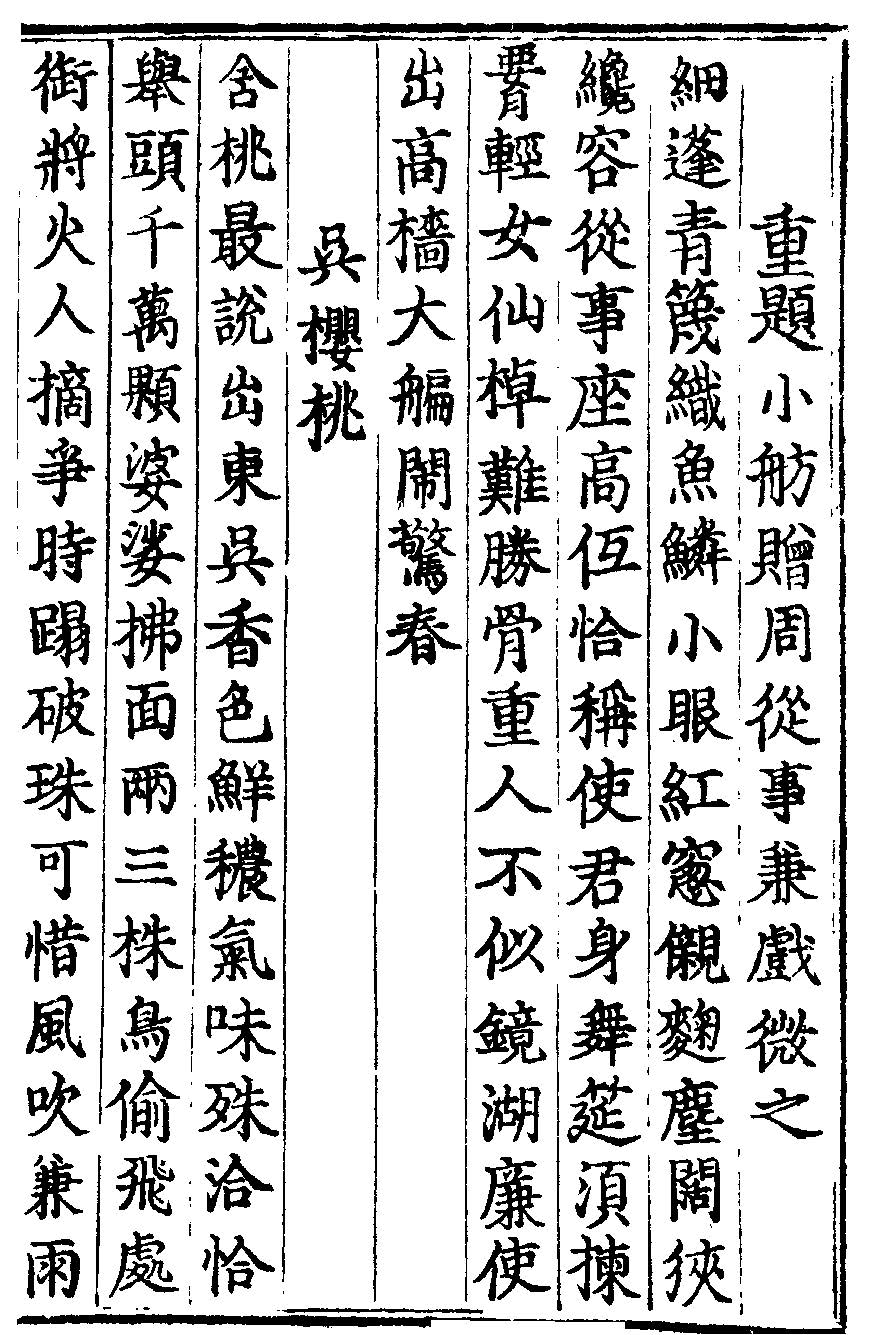 重題小舫贈周從事兼戲微之
細蓬青篾織魚鱗小眼紅窻儭麴塵闊狹
纔容從事座高伍恰稱使君身舞筵湏揀
𦝫輕女仙棹難勝骨重人不似鏡湖廉使
出高檣大艑鬧驚春
吳櫻桃
含桃最說出東吳香色鮮穠氣味殊洽恰
舉頭千萬顆婆娑拂面兩三株鳥偷飛處
銜將火人摘爭時蹋破珠可惜風吹兼雨